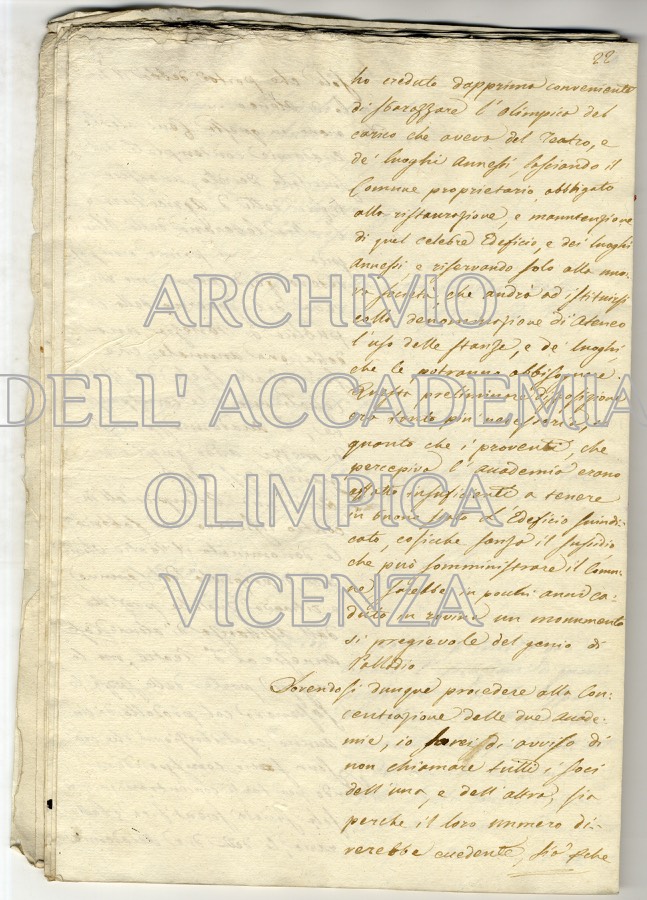 22
ho creduto dapprima conveniente
di sbarazzare l'olimpica del
carico che aveva del Teatro, e
de' luoghi annessi, lasciando il
Comune proprietario, obbligato
alla ristaurazione, e manutenzione
di quel celebre Edeficio, e dei luoghi
annessi, e riservando solo alla nuo-
va società, che andrà ad istituirsi
colla denominazione di Ateneo
l'uso delle stanze, e de' luoghi
che le potranno abbisognare.
Questa preliminare disposizione
era tanto più necessaria, in
quanto che i proventi, che
percepiva l'accademia erano
affatto insufficienti a tenere
in buono stato l'Edeficio suindi-
cato, cosicchè senza il sussidio
che può somministrare il Comu-
ne, sarebbe in pochi anni ca-
duto in rovina un monumento
sì pregievole del genio di
Palladio
Dovendosi dunque procedere alla Con-
centrazione delle due accade-
mie, io sarei di avviso di
non chiamare tutti i soci
dell'una, e dell'altra, sia
perche il loro numero di-
verebbe eccedente, sia
ARCHIVIO
DELL'ACCADEMIA
OLIMPICA
VICENZA